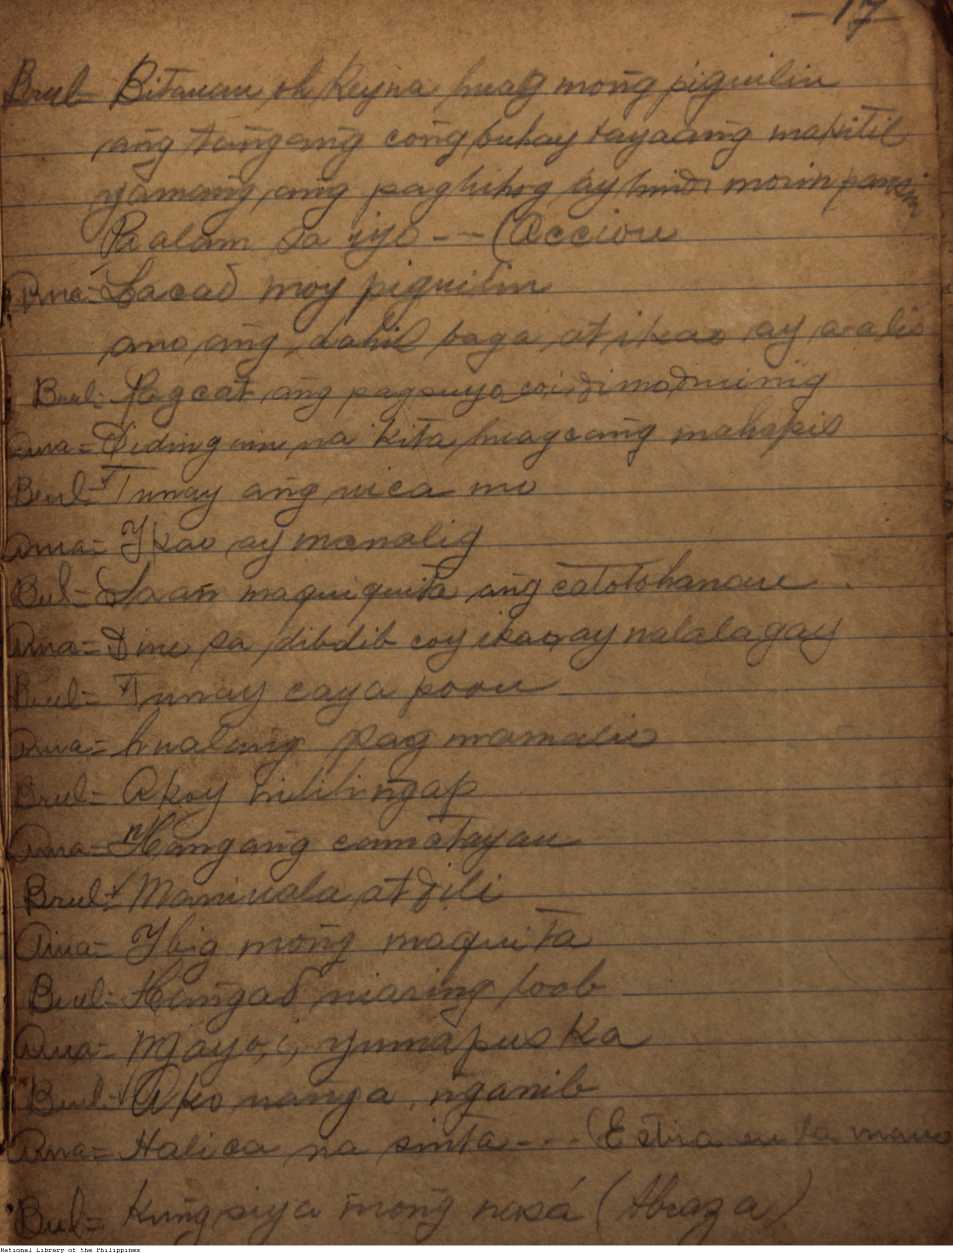 -17-
Brul- Bitauan oh Reyna huag mong piguilin
ang tangang cong buhay bayaang makitil
yamang ang paglihog ay hindi mo rin pansin
Paalam sa iyo --- (Accion
Ana= Lacad moy piguilin
ano ang dahil baga at ikao ay aalis
Brul= Pagcat ang pagsuyo coi di mo dininig
Ana= Didinguin na kita huag cang mahapis
Brul= Tunay ang uica mo
Ana= Ykao ay manalig
Brul= Saan maquiquita ang catotohanan
Ana= Dine sa dibdib coy ikao ay nalalagay
Brul= Tunay caya poon
Ana= hualang pag mamalio
Brul= Akoy lilingap
Ana= Hangang camatayan
Brul= Maniuala at dili
Ana= Ybig mong maquita
Brul= Hangad niaring loob
Ana= Mayo,i, yumapus ka
Brul= Ako nanga, nganib
Ana= Halica na sinta --- (Estira en la mano
Brul= Kung siya mong nasá (Abraza)
National Library of the Philippines